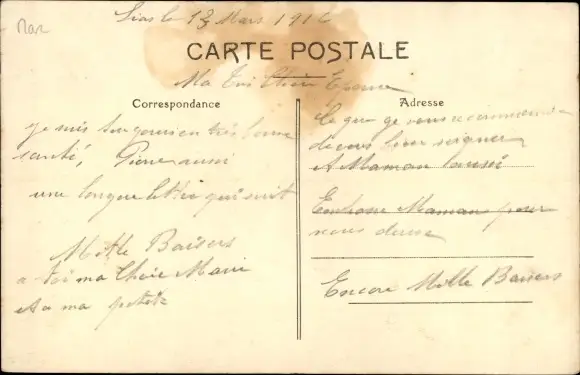 Mar
le 13 Mars 191
CARTE POSTALE
Ma Chère Epouse
Correspondance
je suis toujours en très bonne
santé, Pierre aussi
une longue lettre qui suit
Mille Baisers
a toi ma Chère Marie
et a ma petite
Adresse
Ce que je vous recommande
de vous bien soigner
A Maman aussi
Embrasse Maman pour
nous deux
Encore Mille Baisers